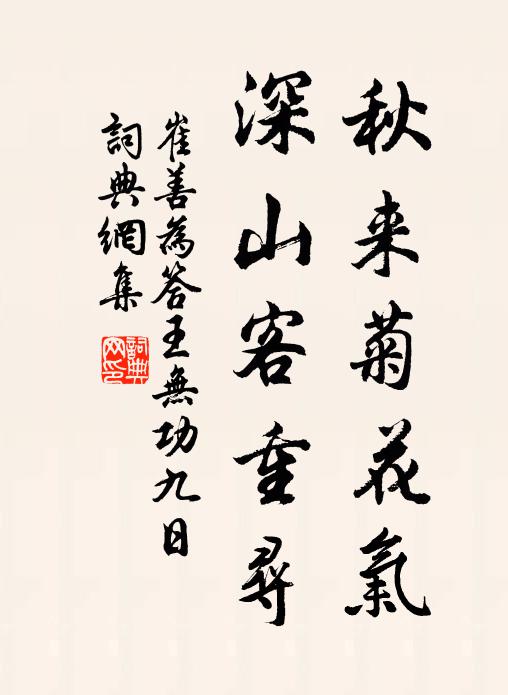 秋来菊花氣
深山客重尋
崔善為答王無功九日
詞典網集
詞典網印